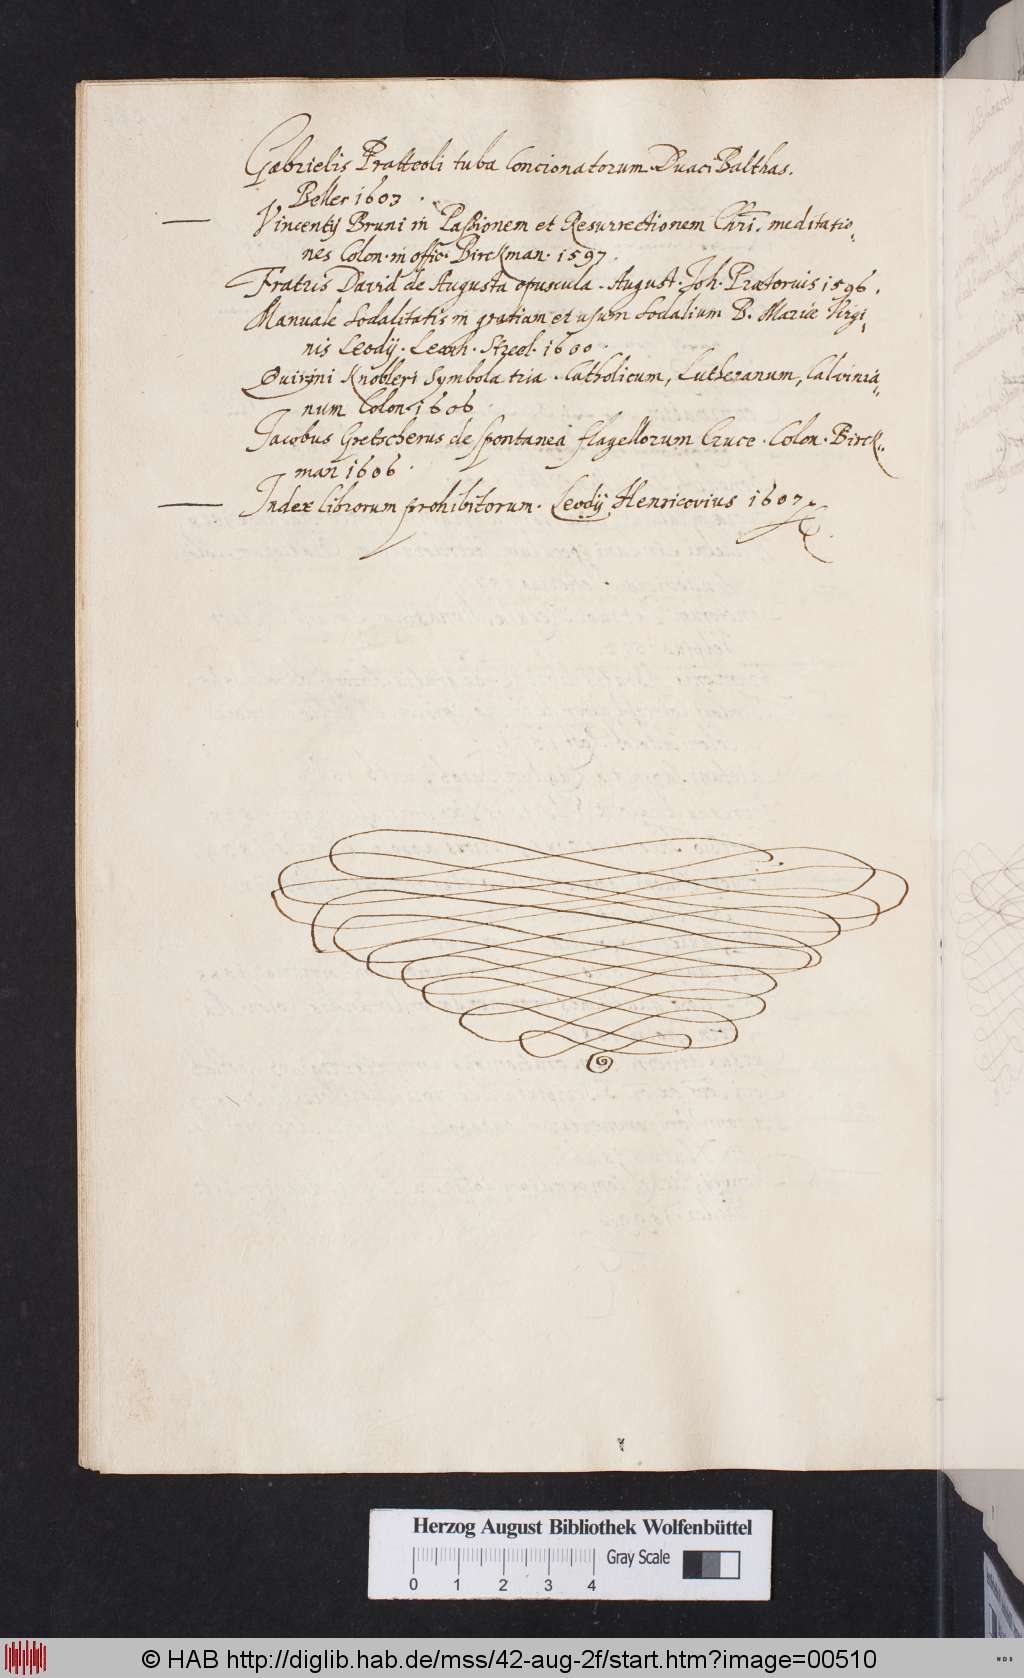 Gabrielis Pratteoli tuba Concionatorum. Duaci Balthas.
Beller 1603.
Vincentij Bruni in Paßionem et Resurrectionem Chri. meditatio,,
nes Colon. in offic. Birckman. 1597.
Fratris David de Augusta opuscula. August. Joh. Prætorius 1596.
Manuale Sodalitatis in gratiam et usum Sodalium B. Mariæ Virgi,,
nis Leodij. Streel. 1600.
Quirini Knobleri Symbola tria. Catholicum, Lutheranum, Calvinia,,
num Colon. 1606.
Jacobus Gretscherus de spontanea flagellorum Cruce. Colon. Birck,,
man 1606.
Index librorum prohibitorum. Leodij Henricovius 1607
Herzog August Bibliothek Wolfenbüttel
Gray Scale
0 1 2 3 4
© HAB http://diglib.hab.de/mss/42-aug-2f/start.htm?image=00510